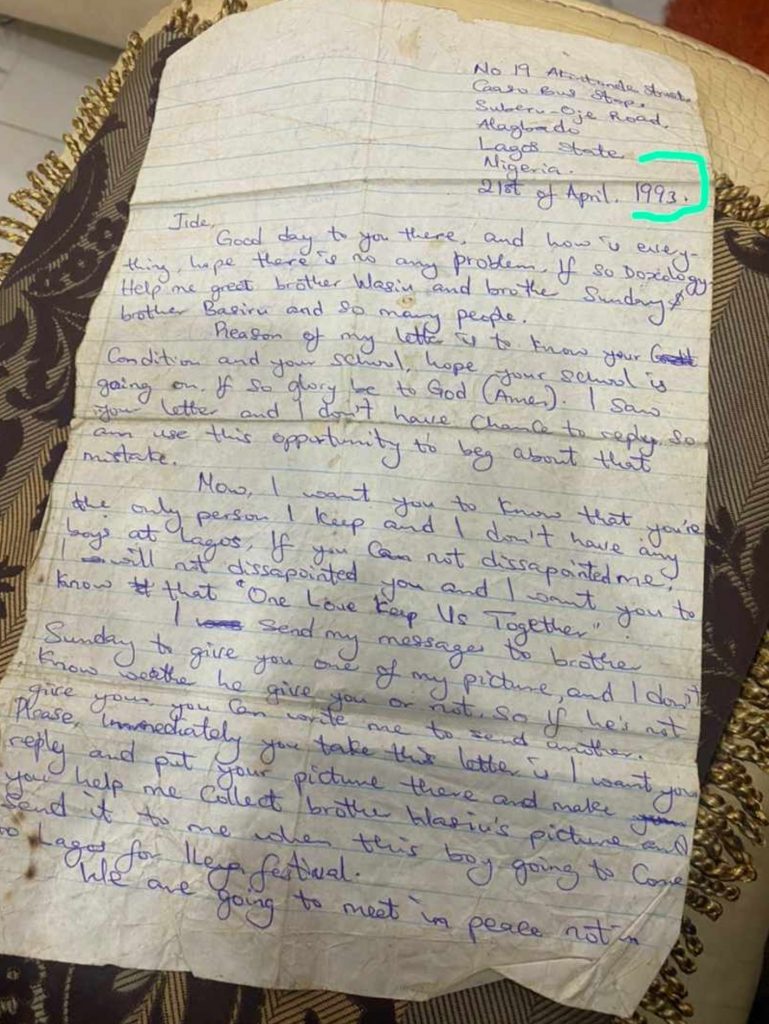 No 19 Akintunde Street
Caaso Bus Stop,
Suberu-Oje Road,
Alagbado
Lagos State
Nigeria.
21st of April. 1993.
Jide,
Good day to you there, and how is every-
thing, hope there is no any problem. If so Doxology
Help me greet brother Wasiu and brothe Sunday &
brother Basiru and so many people.
Reason of my letter is to know your
Condition and your school, hope your school is
going on. If so glory be to God (Amen). I saw
your letter and I don't have chance to reply. so
am use this opportunity to beg about that
mistake.
Now, I want you to know that you're
the only person I keep and I don't have any
boys at Lagos, If you Can not dissapointed me,
I will not dissapointed you and I want you to
know that "One Love Keep Us Together".
I send my message to brother
Sunday to give you one of my picture, and I don't
know weathe he give you or not. so if he's not
give you you can write me to send another.
Please, Immediately you take this letter is I want you
reply and put your picture there and make
you help me Collect brother Wasiu's picture and
send it to me when this boy going to Come
to Lagos for Ileya festival.
We are going to meet in peace not in